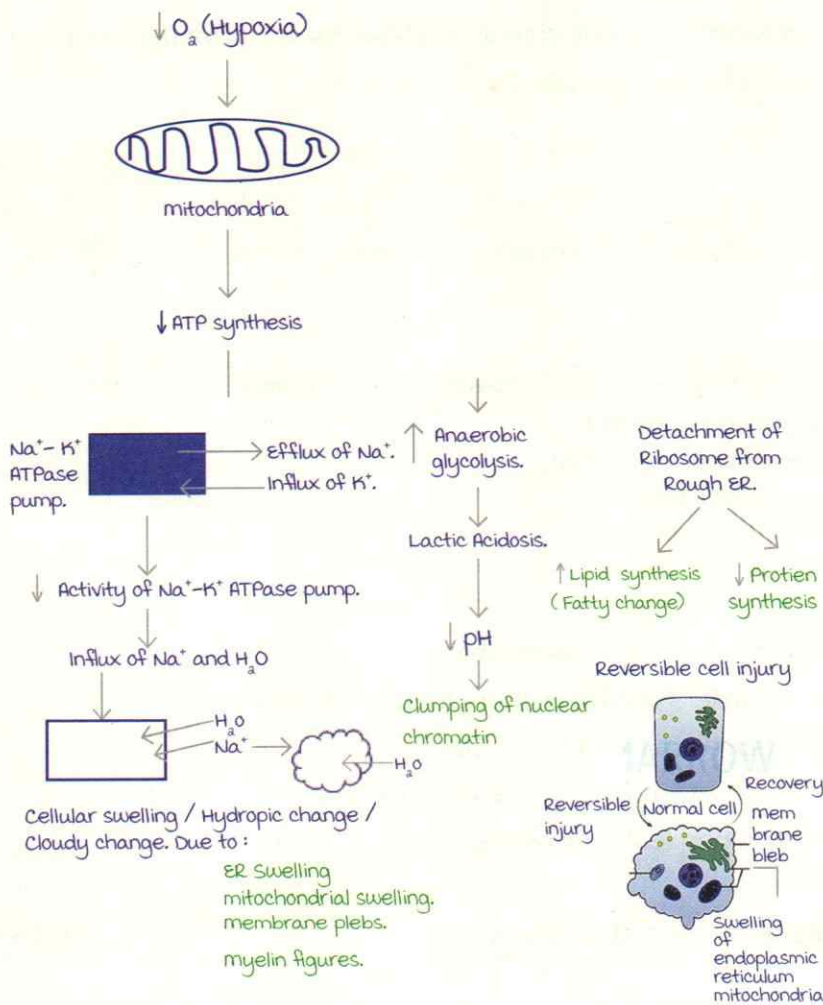 ↓ O₂ (Hypoxia)
mitochondria
↓ ATP synthesis
Na⁺- K⁺
ATPase
pump.
Efflux of Na⁺.
Influx of K⁺.
↓ Activity of Na⁺-K⁺ ATPase pump.
Influx of Na⁺ and H₂O
H₂O
Na⁺
H₂O
Cellular swelling / Hydropic change /
Cloudy change. Due to :
ER Swelling
mitochondrial swelling.
membrane plebs.
myelin figures.
↑ Anaerobic
glycolysis.
Lactic Acidosis.
↓ pH
Clumping of nuclear
chromatin
Detachment of
Ribosome from
Rough ER.
↑ Lipid synthesis
(Fatty change)
↓ Protien
synthesis
Reversible cell injury
Recovery
Reversible
injury
Normal cell
mem
brane
bleb
Swelling
of
endoplasmic
reticulum
mitochondria